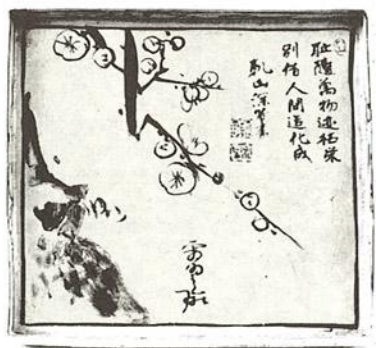 耻隨萬物逐枯榮
別借人間造化成
乾山深省書